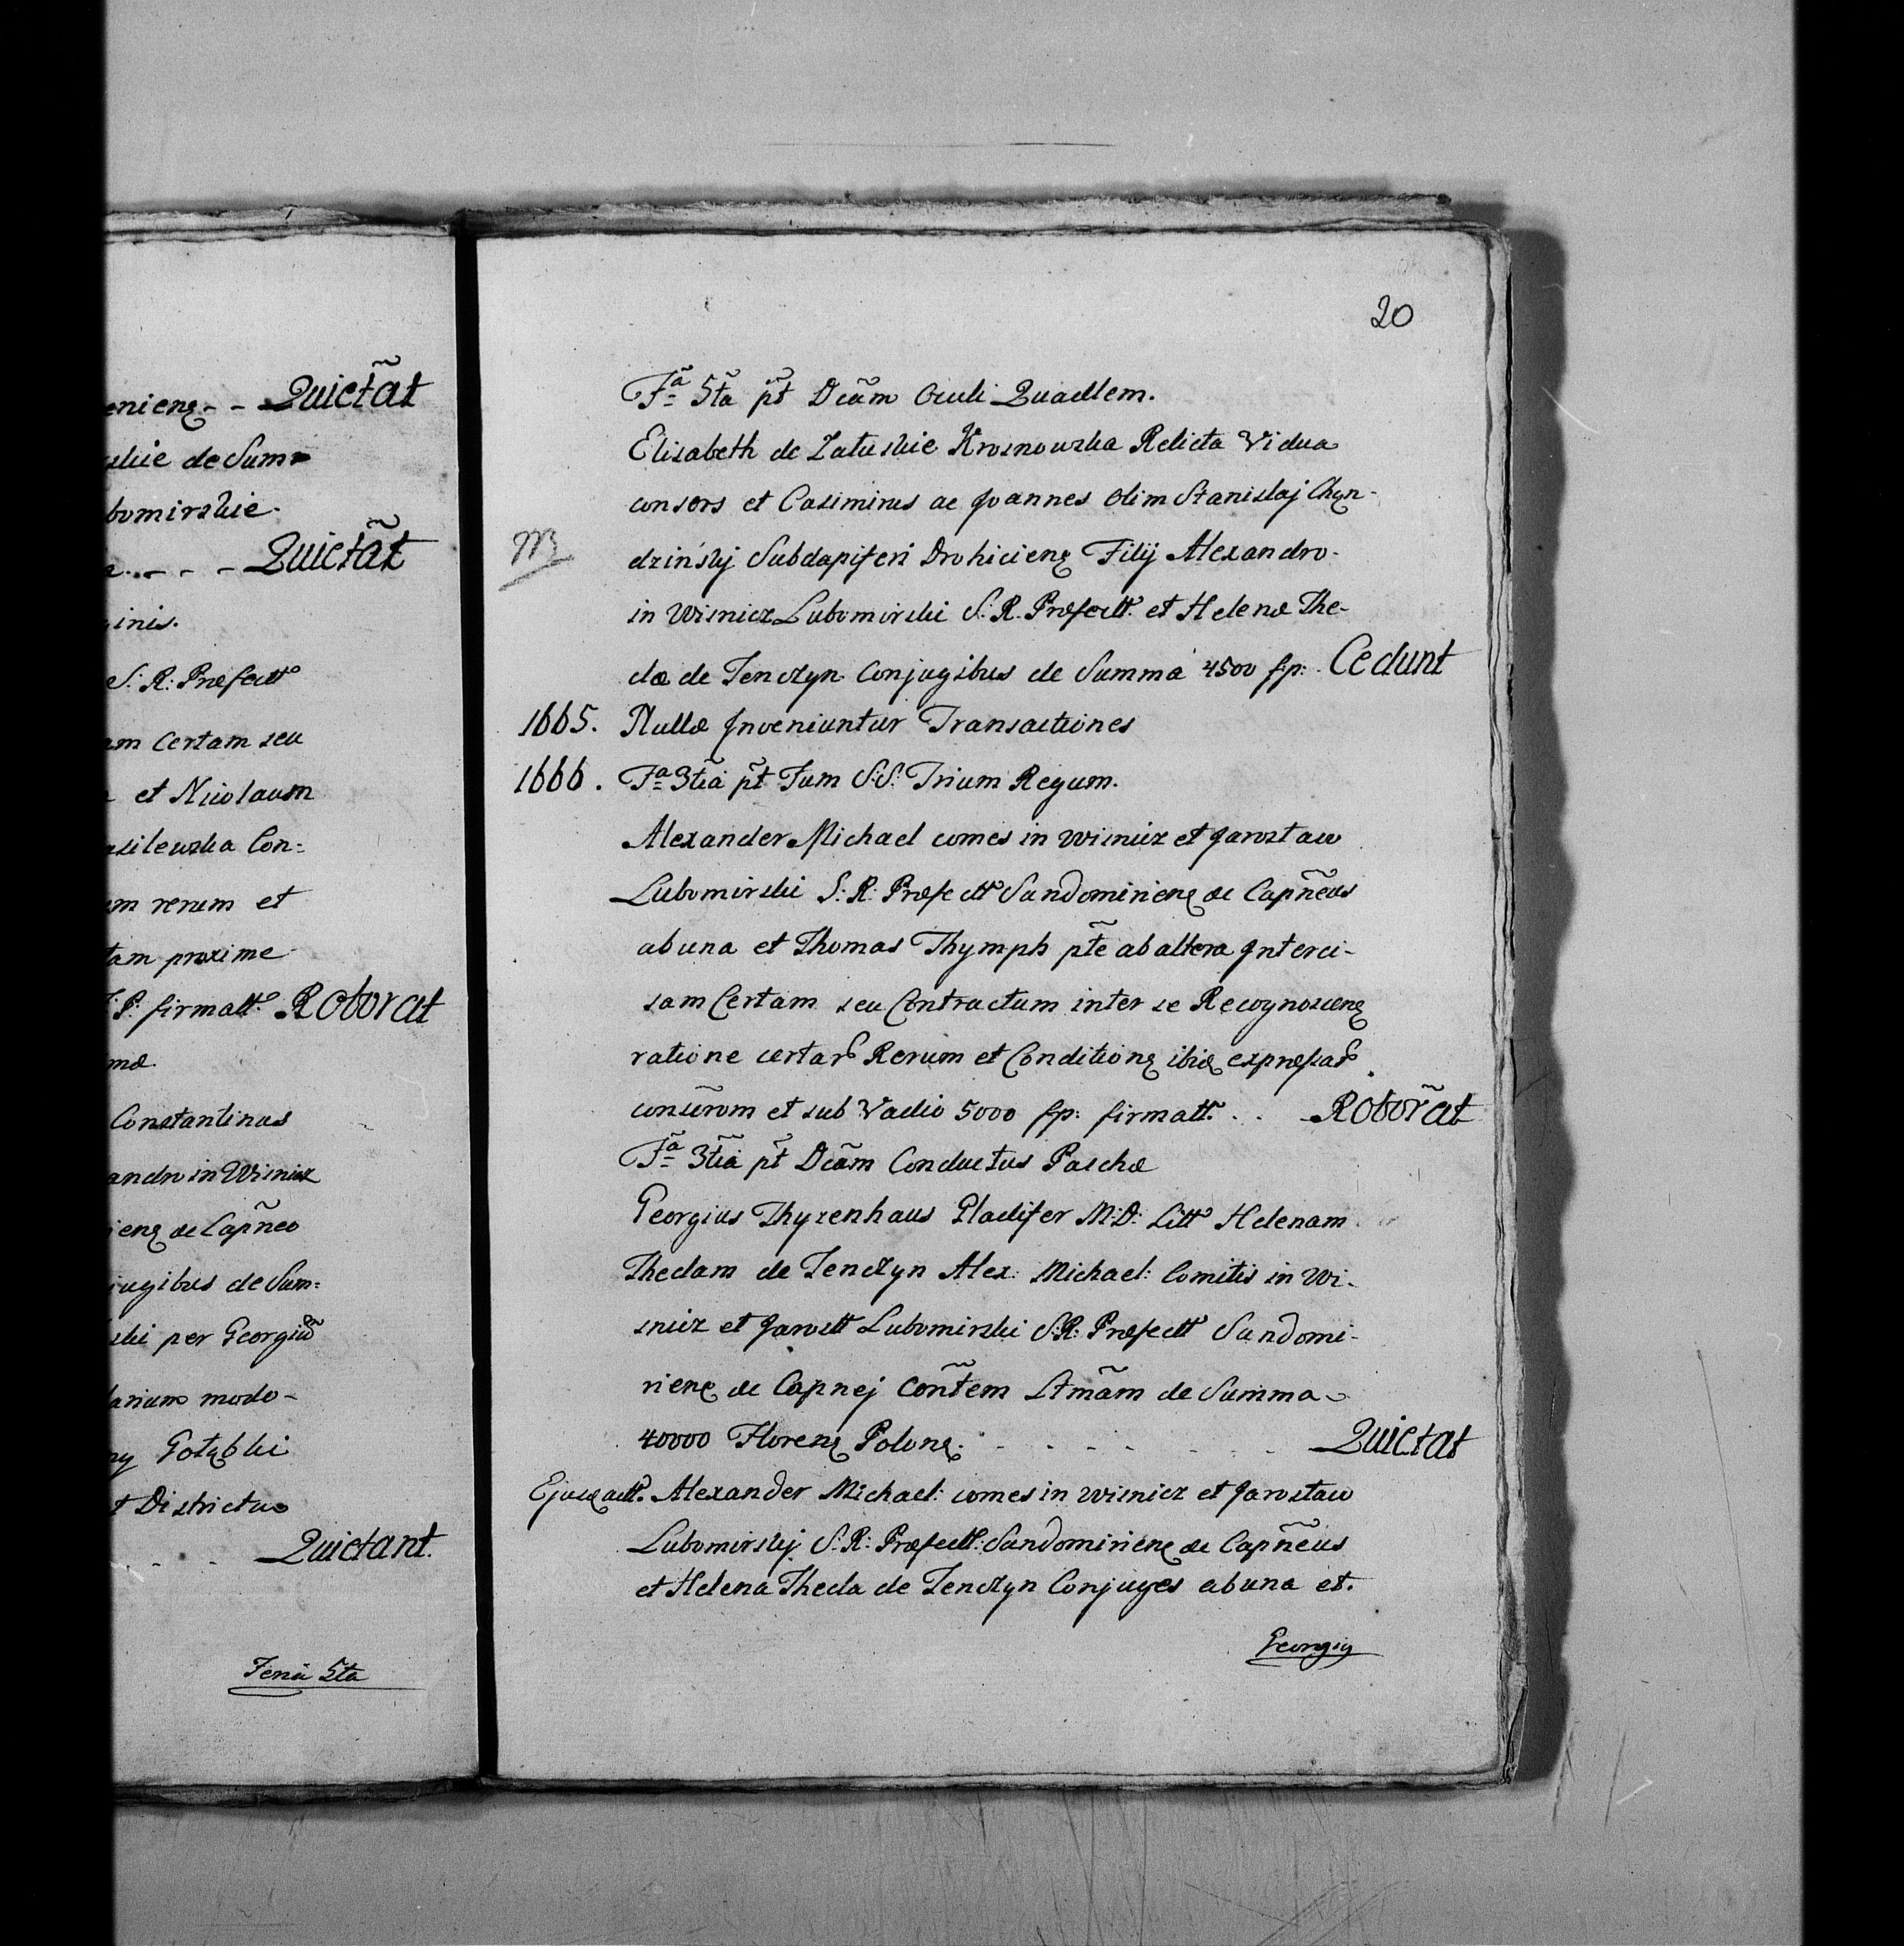 eniens - - Quietat
skie de Sum
bomirskie.
- - - Quietat
inis.
S. R. Præfectt
am Certam seu
et Nicolaum
asilewska Con=
m rerum et
tam proxime
P. firmatt. Roborat
mæ
Constantinus
andro in Wisnicz
iens ac Capneo
jugibus de Sum=
ski per Georgiũ
larium modo-
ny Gołąbki
t Districtus
- - - Quietant.
Feria 5ta
20
Fã 5ta pt Dcãm Oculi Quadlem.
Elisabeth de Załuskie Krosnowska Relicta Vidua
consors et Casimirus ac Joannes olim Stanislaj Chąn-
dzińskj Subdapiferi Drohiciens Filij Alexandro-
in Wisnicz Lubomirski S. R. Præfectt. et Helenæ The-
clæ de Tenczyn Conjugibus de Summa 4500 fp: Cedunt
1665. Nullæ Inveniuntur Transactiones
1666. Fã 3tia pt Fum S.S. Trium Regum.
Alexander Michael comes in Wisnicz et Jarosław
Lubomirski S: R: Præfectt Sandomiriens ac Capñeus
ab una et Thomas Thymph pte ab altera Interci-
sam Certam seu Contractum inter se Recognoscens
ratione certar Rerum et Conditions ibid expressar
conserom et sub Vadio 5000 fp: firmatt. . . Roborãt
Fã 3tia pt Dcãm Conductus Paschæ
Georgius Thyzenhaus Gladifer M:D: Litt Helenam
Theclam de Tenczyn Alex: Michael: Comitis in Wi-
snicz et Jarosłł Lubomirski S:R: Præfectt Sandomi-
riens ac Capnej Contem Ltmãm de Summa
40000 Florens Polons. - - - - - - Quietat
Ejusd actt. Alexander Michael: comes in Wisnicz et Jarosław
Lubomirskj S. R: Præfectt: Sandomiriens ac Capñeus
et Helena Thecla de Tenczyn Conjuges ab una et.
Georgiy